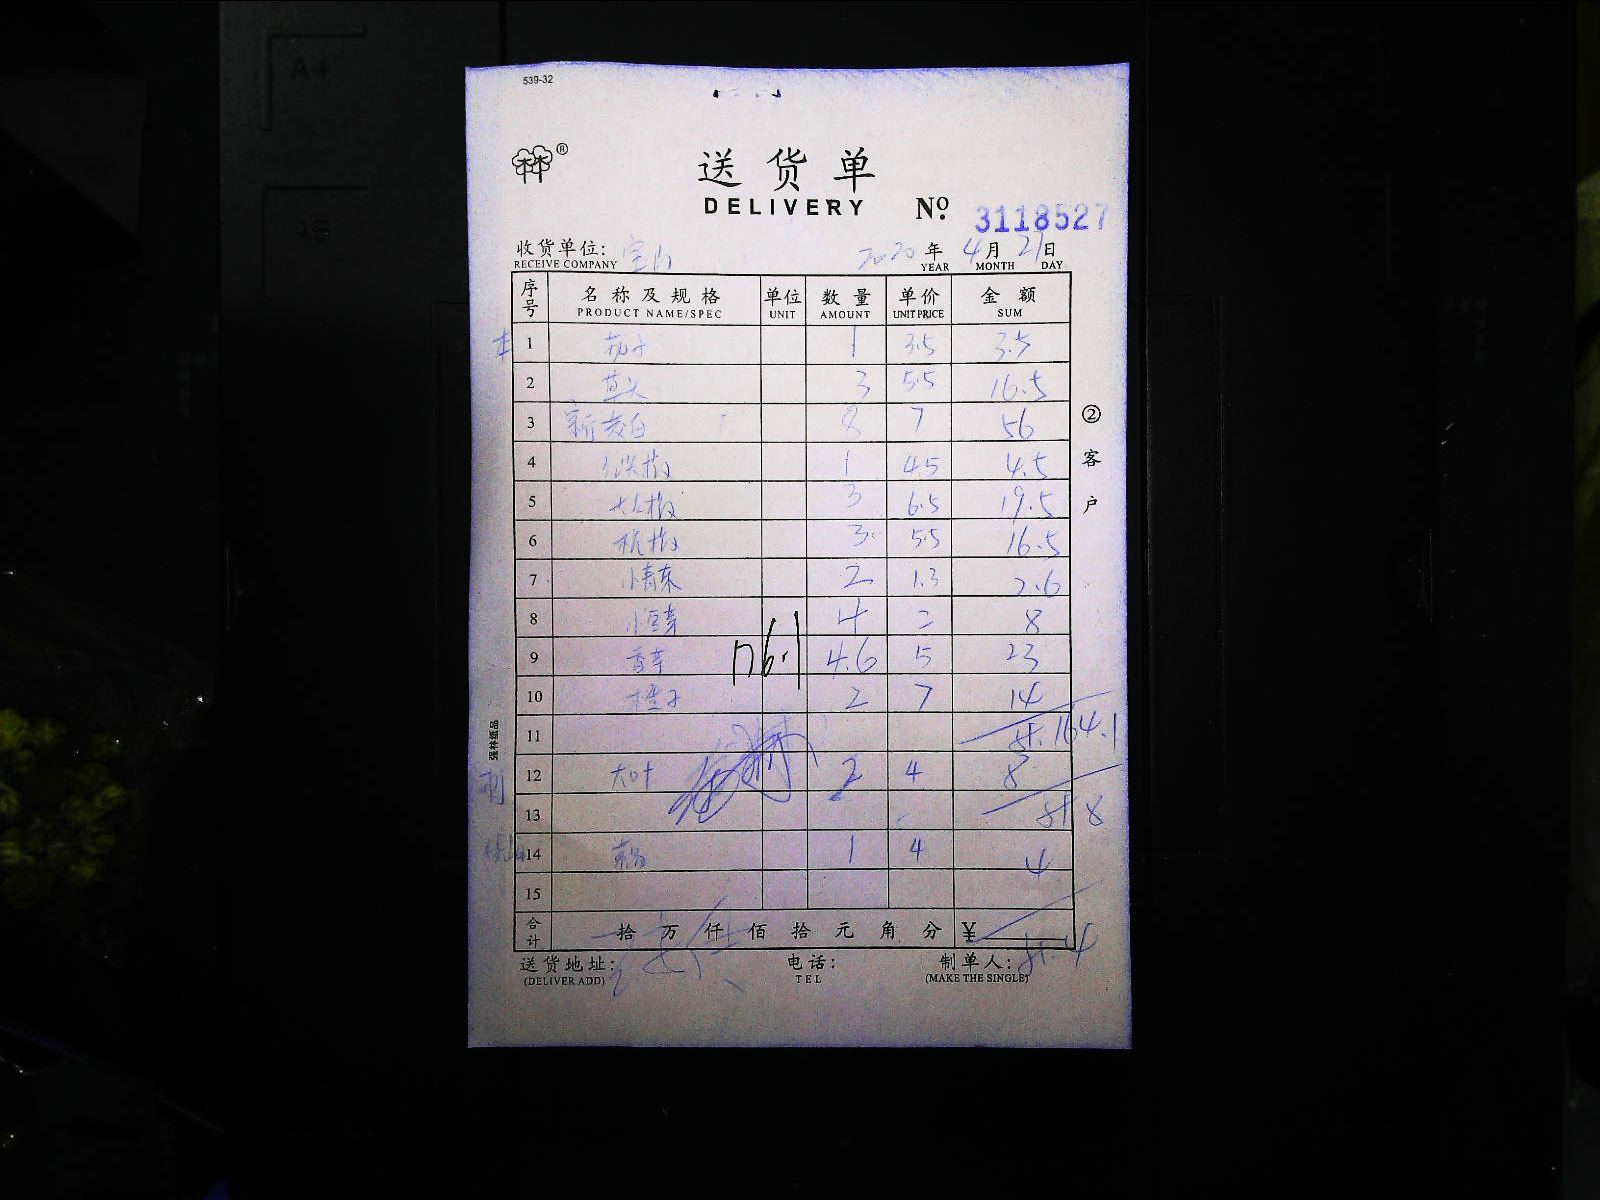 539-32
®
送货单
DELIVERY № 3118527
收货单位: 宝山 2020年 4月 21日
RECEIVE COMPANY YEAR MONTH DAY
序号 名称及规格 单位 数量 单价 金额
PRODUCT NAME/SPEC UNIT AMOUNT UNIT PRICE SUM
1 茄子 1 3.5 3.5
2 草头 3 5.5 16.5
3 茭白 8 7 56
4 尖椒 1 4.5 4.5
5 椒 3 6.5 19.5
6 杭椒 3 5.5 16.5
7 小青菜 2 1.3 2.6
8 小豆芽 4 2 8
9 香芹 4.6 5 23
176.1
10 橙子 2 7 14
11 计.164.1
12 大叶 2 4 8
13 计 8
14 1 4 4
15
合计 拾 万 仟 佰 拾 元 角 分 ¥
计.4
送货地址: 电话: 制单人:
(DELIVER ADD) TEL (MAKE THE SINGLE)
②客户
强林纸品